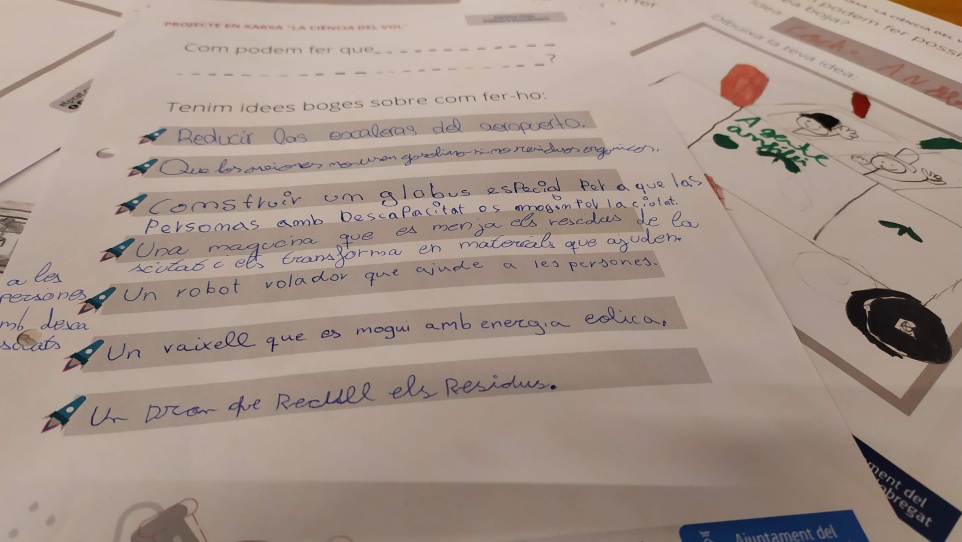 PROJECTE EN XARXA "LA CIÈNCIA DEL VOL"
Com podem fer que
?
Tenim idees boges sobre com fer-ho:
Reducir las escaleras del aeropuerto.
Que los aviones no usen gasolina si no residuos organicos.
Construir un globus especial per a que las
Personas amb Descapacitat es mogin Per la ciutat.
Una maquina que es menja els residus de la
sciutat i els transforma en materials que ajuden.
a les
persones
amb desca
scitats
Un robot volador que ajude a les persones.
Un vaixell que es mogui amb energia eolica.
Un Dron que Recull els Residus.
Ajuntament del
LA CIÈNCIA DEL V
podem fer possi
ea boja?
idea
Dibuixa la teva idea:
Agente
ment del
obregat